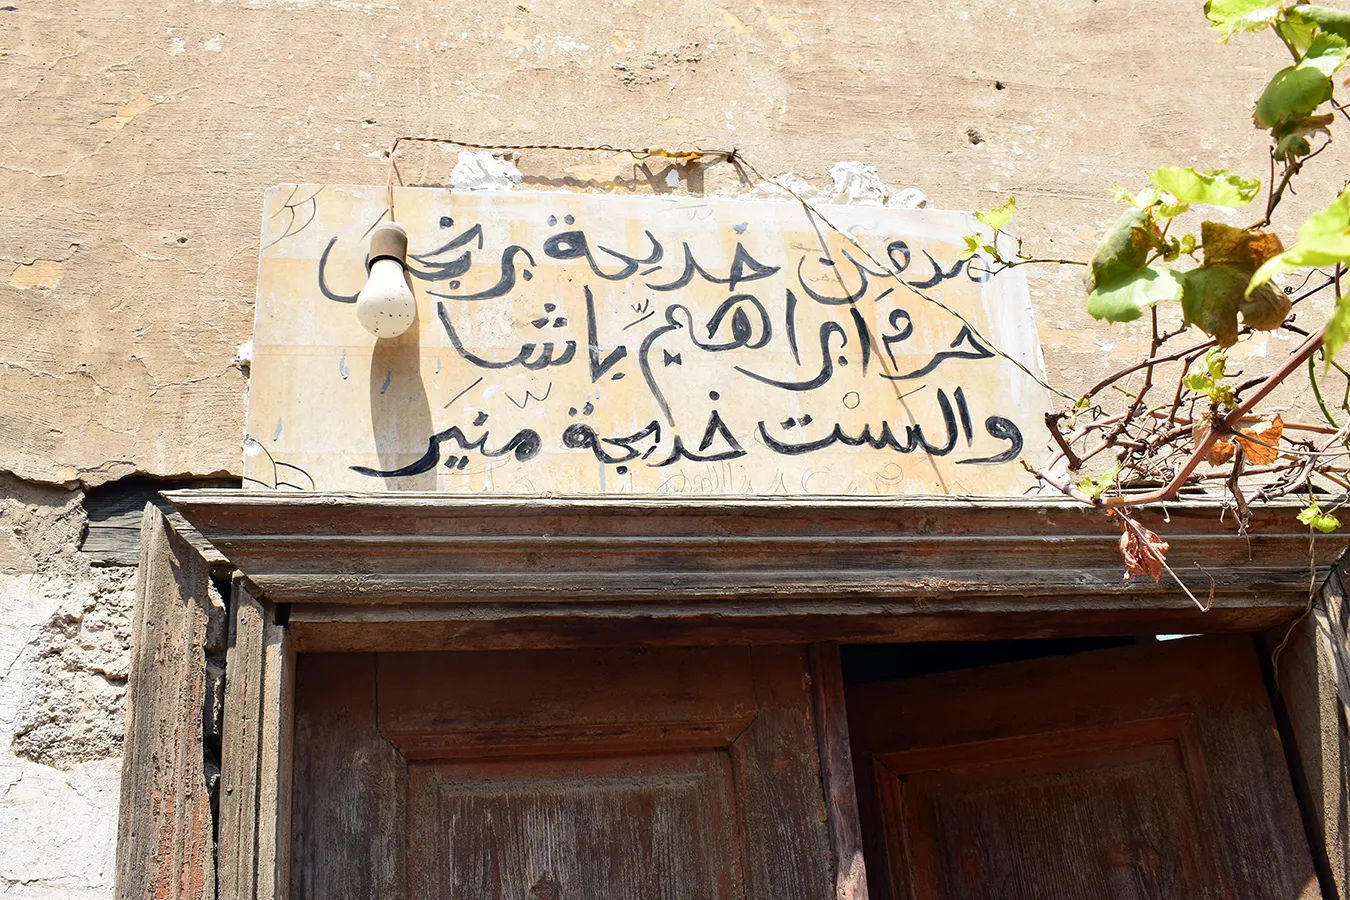 مدفن خديجة برنجى
حرم ابراهيم باشا
والست خديجة منير